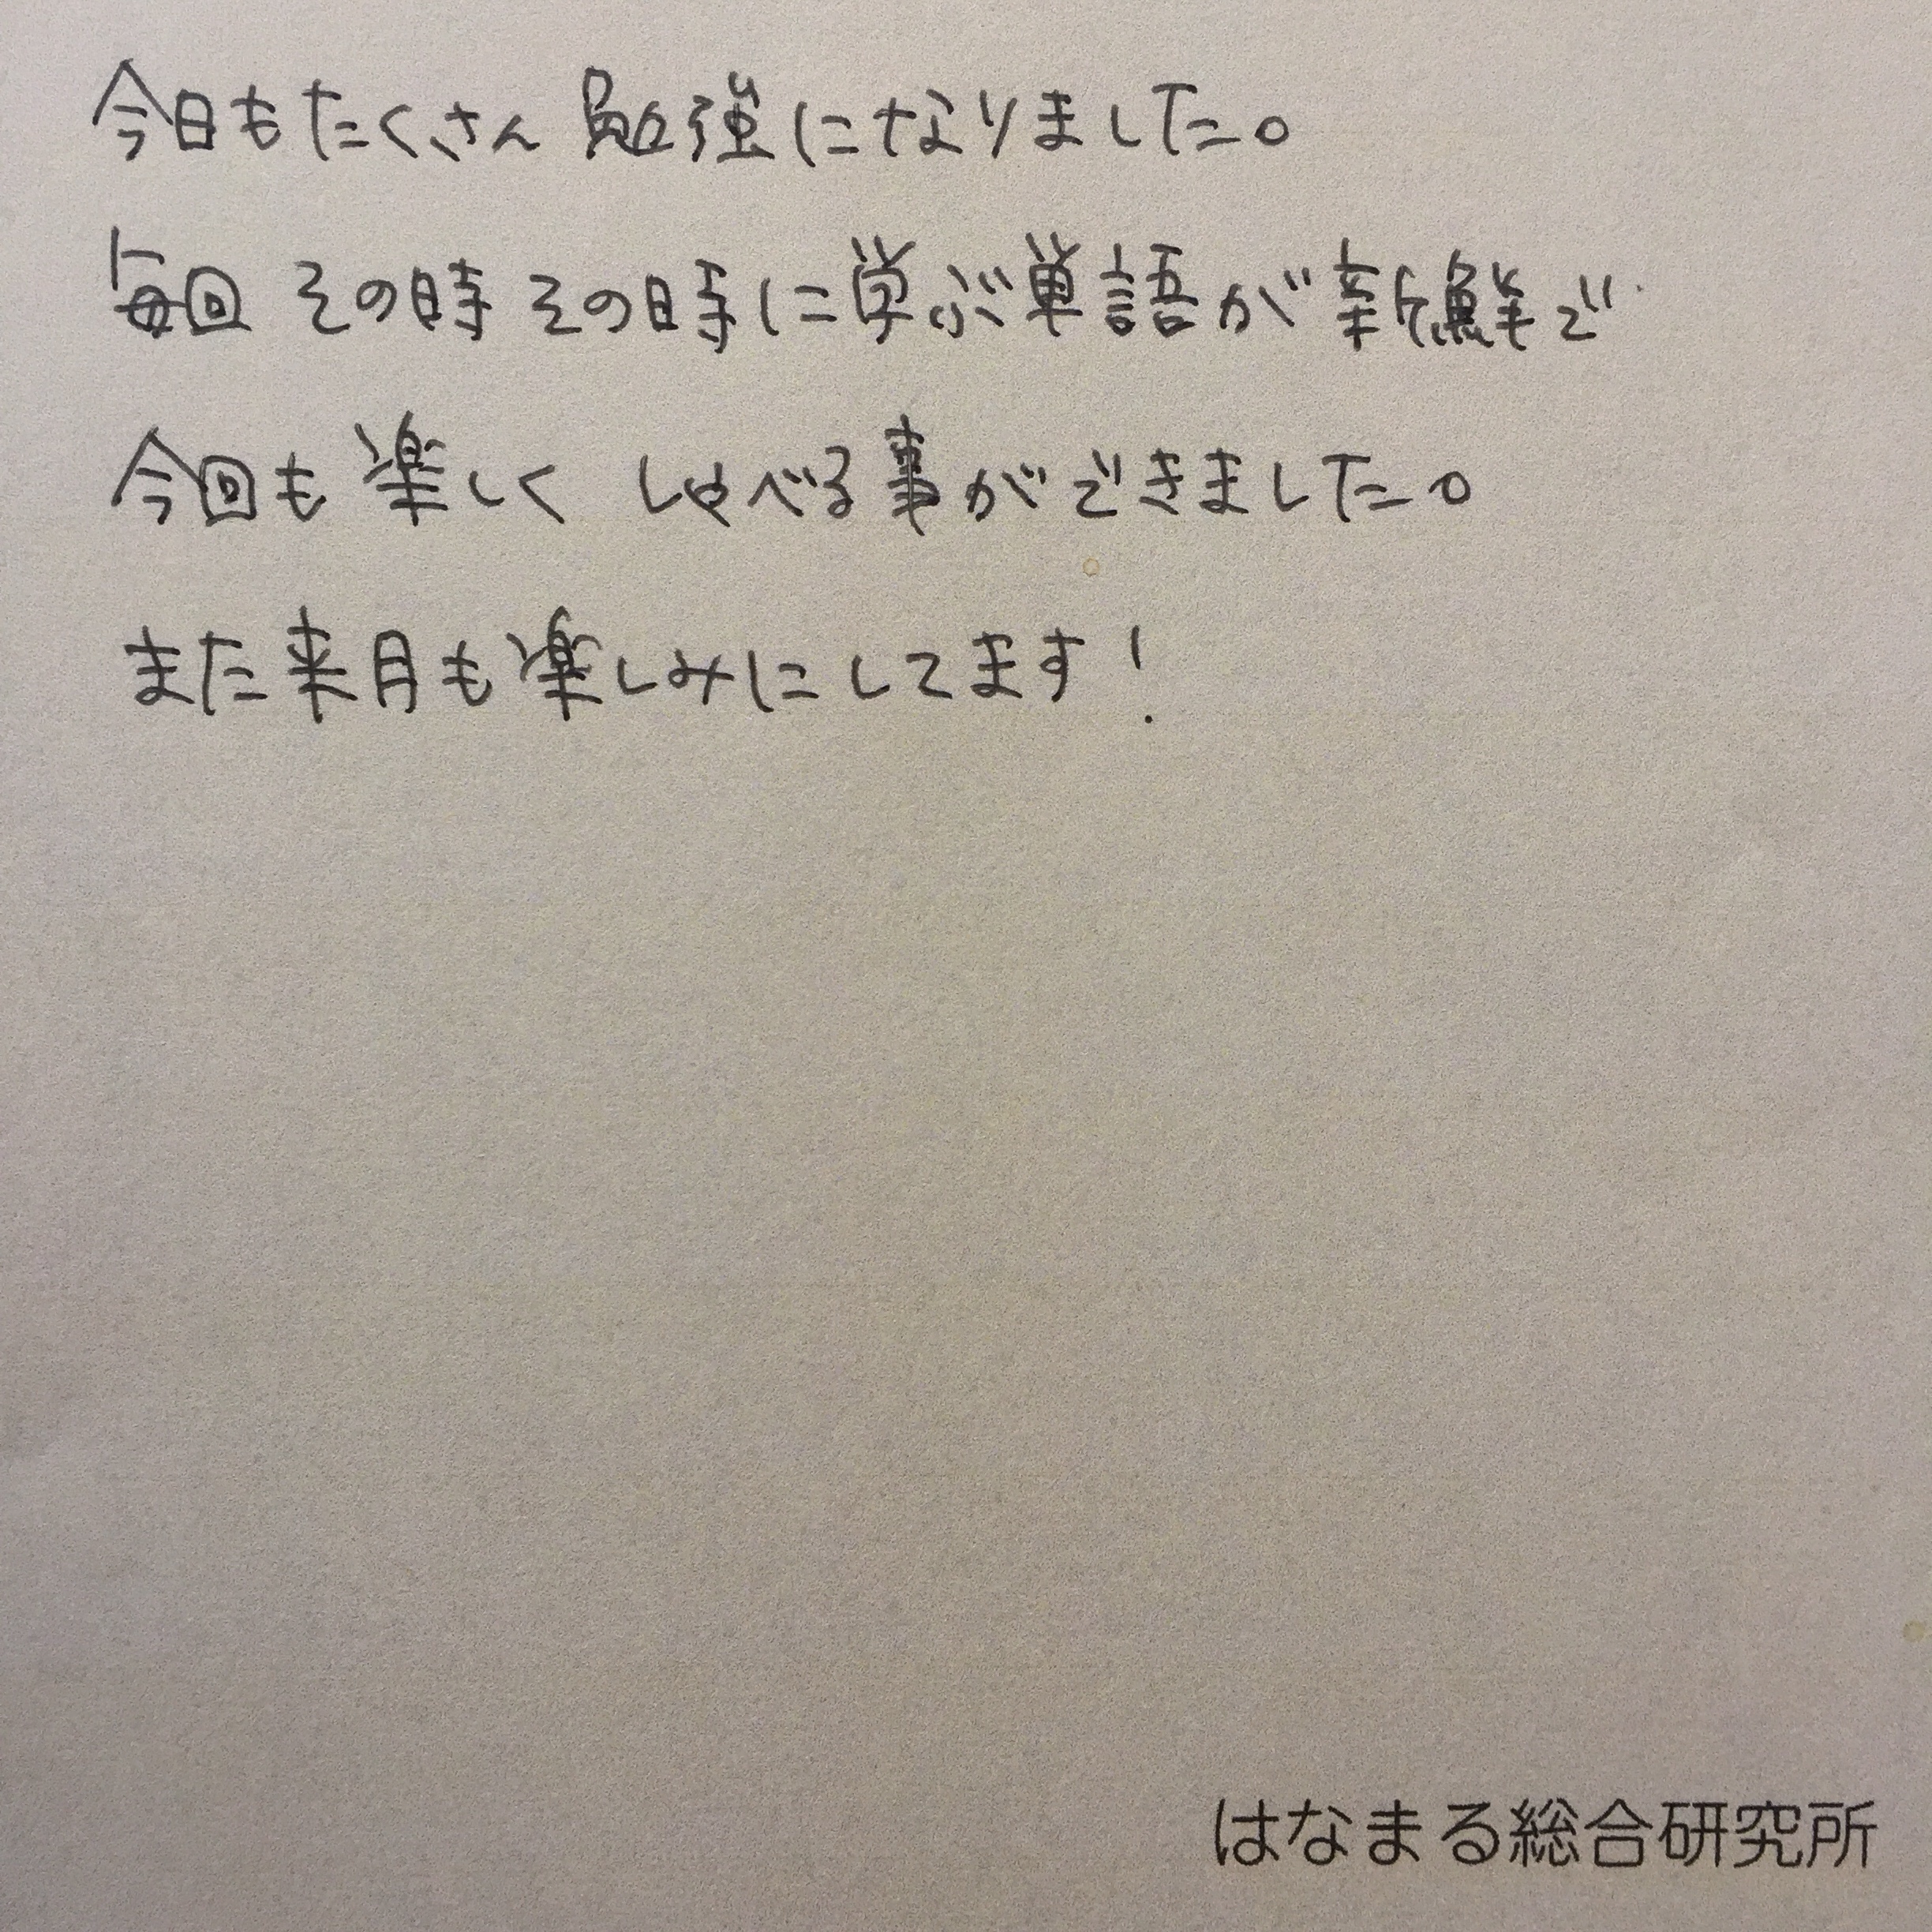 今日もたくさん勉強になりました。
毎回その時その時に学ぶ単語が新鮮で
今回も楽しく しゃべる事ができました。
また来月も楽しみにしてます!
はなまる総合研究所